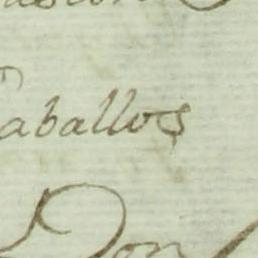 aballos
Don